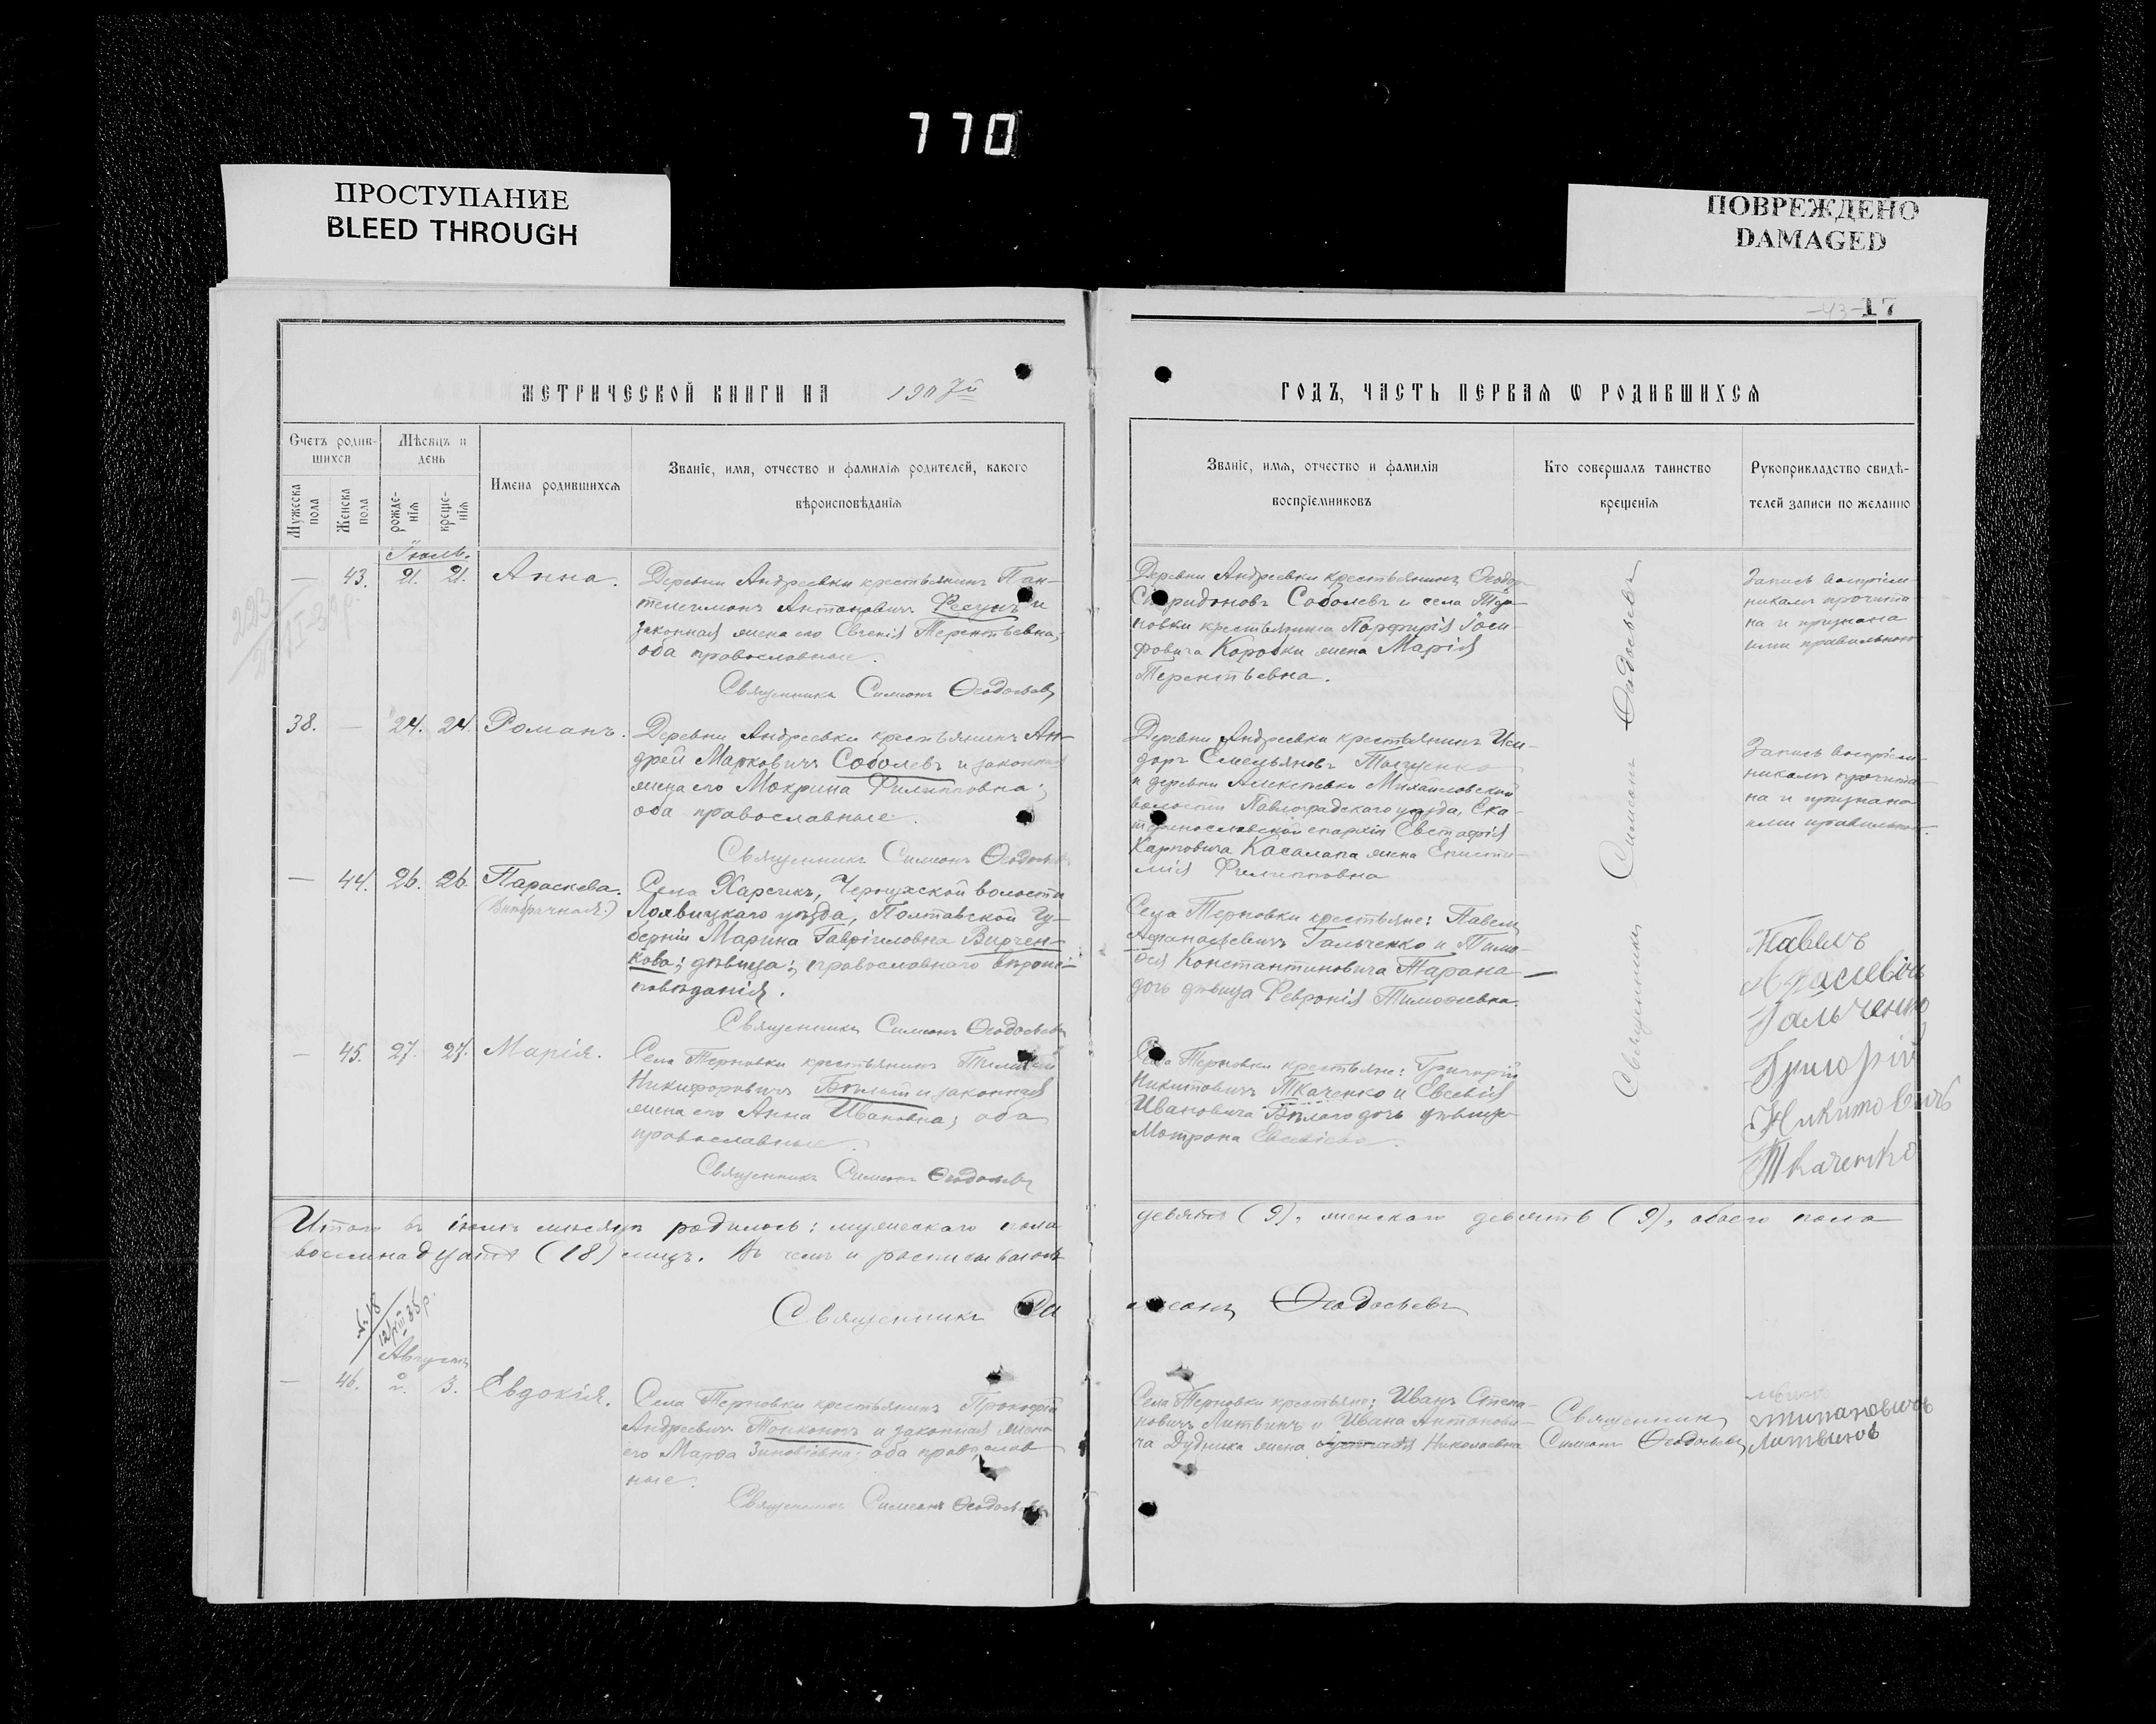 770
ПРОСТУПАНИЕ
BLEED THROUGH
ПОВРЕЖДЕНО
DAMAGED
-43- 17
МЕТРИЧЕСКОЙ КНИГИ НА 1907й
ГОДЪ, ЧАСТЬ ПЕРВАЯ Ѡ РОДИВШИХСЯ
Счетъ родив-
шихся
Мужеска
пола
Женска
пола
Мѣсяцъ и
день
рожде-
нія
креще-
нія
Имена родившихся
Званіе, имя, отчество и фамилія родителей, какого
вѣроисповѣданія
Званіе, имя, отчество и фамилія
воспріемниковъ
Кто совершалъ таинство
крещенія
Рукоприкладство свидѣ-
телей записи по желанію
Іюль.
— 43. 21. 21. Анна.
Деревни Андреевки крестьянинъ Пан-
телеимонъ Антоновичъ и
законная жена его Евгенія Терентьевна,
оба православные.
Священникъ Симеонъ Ѳеодосьевъ
Деревни Андреевки крестьянинъ Ѳеодоръ
Спиридоновъ Соболевъ и села Тер-
новки крестьянина Порфирія Іоси-
фовича Коровки жена Марія
Терентьевна.
Запись воспріем-
никамъ прочита-
на и признана
ими правильною
38. — 24. 24. Романъ.
Деревни Андреевки крестьянинъ Ан-
дрей Марковичъ Соболевъ и законная
жена его Мокрина Филипповна;
оба православные.
Священникъ Симеонъ Ѳеодосьевъ
Деревни Андреевки крестьянинъ Иси-
доръ Емельяновъ
и деревни Алексѣевки Михайловской
волости Павлоградскаго уѣзда, Ека-
теринославской епархіи Евстафія
Карповича жена Еписти-
мія Филипповна
Запись воспріем-
никамъ прочита-
на и признана
ими правильною.
— 44. 26. 26. Параскева.
(Внѣбрачная.)
Села Харсикъ, Чернухской волости
Лохвицкаго уѣзда, Полтавской Гу-
берніи Марина Гавріиловна Вирчен-
кова; дѣвица; православнаго вѣроис-
повѣданія.
Священникъ Симеонъ Ѳеодосьевъ
Села Терновки крестьяне: Павелъ
Афанасьевичъ Гальченко и Тимо-
ѳея Константиновича Тарана —
дочь дѣвица Февронія Тимоѳеевна.
Павелъ
Гальченко
— 45. 27. 27. Марія.
Села Терновки крестьянинъ
Никифоровичъ Бѣлый и законная
жена его Анна Ивановна; оба
православные.
Священникъ Симеонъ Ѳеодосьевъ
Села Терновки крестьяне: Григорій
Никитовичъ Ткаченко и Евсевія
Ивановича Бѣлаго дочь дѣвица
Мотрона Евсевіева.
Григорій
Никитовичъ
Ткаченко
Священникъ Симеонъ Ѳеодосьевъ
Итого въ іюлѣ мѣсяцѣ родилось: мужескаго пола
девять (9), женскаго девять (9), обоего пола
восемнадцать (18) лицъ. Въ чемъ и расписываюсь
Священникъ Симеонъ Ѳеодосьевъ
№ 18
12/VIII 35 р.
Августъ
— 46. 2. 3. Евдокія.
Села Терновки крестьянинъ Прокофій
Андреевичъ и законная жена
его Марфа Зиновіевна; оба православ-
ные.
Священникъ Симеонъ Ѳеодосьевъ
Села Терновки крестьяне: Иванъ Степа-
новичъ Литвинъ и Ивана Антонови-
ча Дудника жена Николаевна
Священникъ
Симеонъ Ѳеодосьевъ
Литвинов